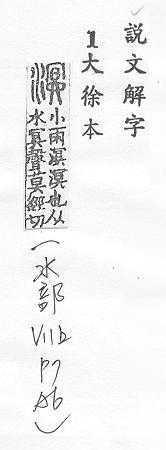 説文解字
1大徐本
溟 小雨溟溟也从
水冥聲莫經切
(水部 VIIb p7 A6)